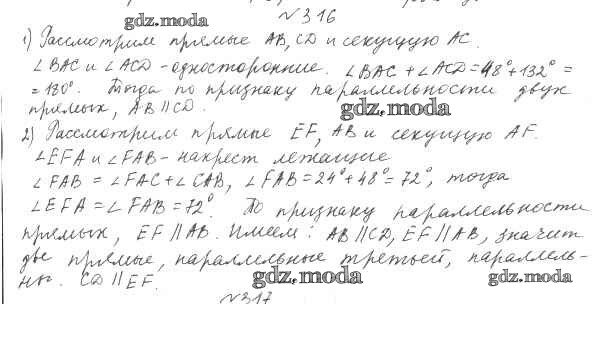 №316
gdz.moda
1) Рассмотрим прямые AB, CD и секущую AC.
∠BAC и ∠ACD - односторонние. ∠BAC + ∠ACD = 48° + 132° =
= 180°. Тогда по признаку параллельности двух
прямых, AB ∥ CD.
gdz.moda
2) Рассмотрим прямые EF, AB и секущую AF.
∠EFA и ∠FAB - накрест лежащие
∠FAB = ∠FAC + ∠CAB, ∠FAB = 24° + 48° = 72°, тогда
∠EFA = ∠FAB = 72°. По признаку параллельности
прямых, EF ∥ AB. Имеем: AB ∥ CD, EF ∥ AB, значит
две прямые, параллельные третьей, параллель-
ны. CD ∥ EF.
gdz.moda
gdz.moda
№317